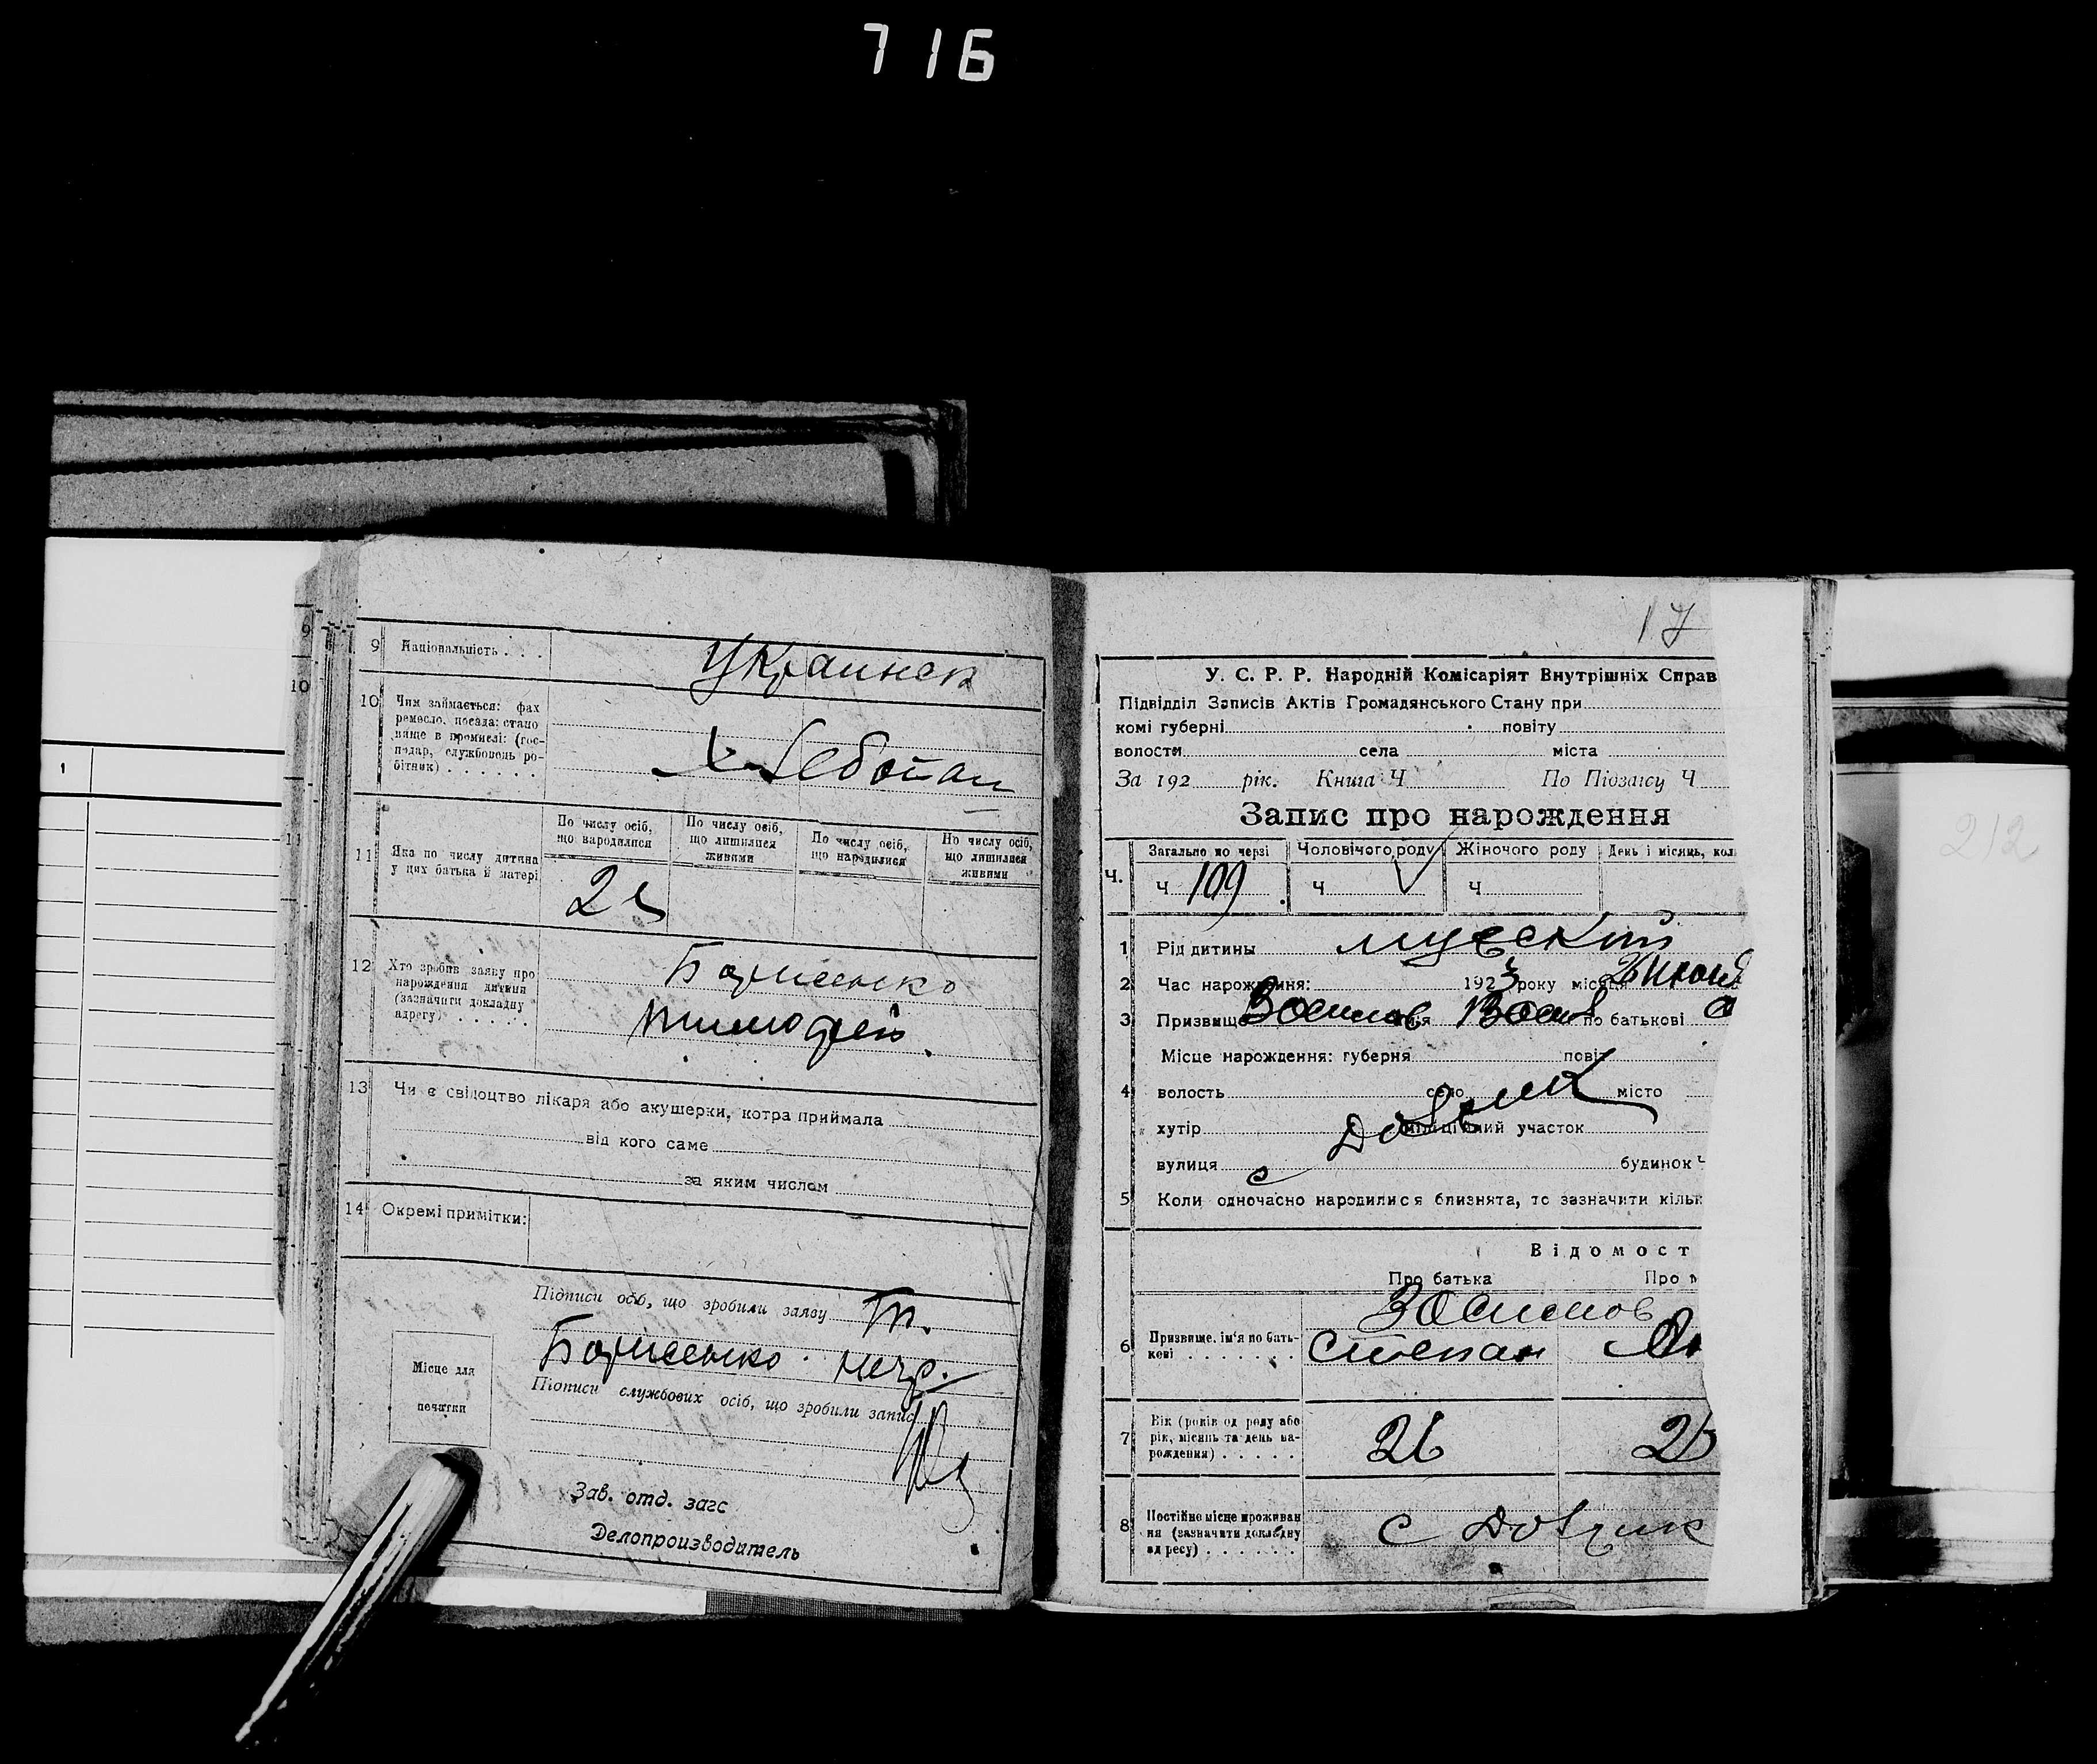 716
9 Національність . . . Украинск
10 Чим займається: фах
ремесло, посада: стано
вище в промислі: (гос-
подар, службовець ро-
бітник) . . . . . .
Хлебопаш
11 Яка по числу дитина
у цих батька й матері
По числу осіб,
що народилися
По числу осіб,
що лишилися
живими
По числу осіб,
що народилися
По числу осіб,
що лишилися
живими
2
12 Хто зробив заяву про
народження дитини
(зазначити докладну
адресу) . . . . .
Борисенко
Тимофей
13 Чи є свідоцтво лікаря або акушерки, котра приймала
від кого саме
за яким числом
14 Окремі примітки:
Підписи осіб, що зробили заяву Т.
Борисенко. негр.
Підписи службових осіб, що зробили запис
Місце для
печатки
Зав. отд. загс
Делопроизводитель
9
10
11
1
17
У. С. Р. Р. Народній Комісаріят Внутрішніх Справ
Підвідділ Записів Актів Громадянського Стану при
комі губерні повіту
волости села міста
За 192 рік. Книга Ч По Підзагсу Ч
Запис про народження
Ч. Загально по черзі Чоловічого роду Жіночого роду День і місяць, кол
Ч 109 Ч Ч
1 Рід дитины мужеский
2 Час народження: 1923 року місяця 26 июня
3 Призвище по батькові
Місце нарождення: губерня повіт
4 волость село місто
хутір міліційний участок
вулиця будинок Ч
с Должик
5 Коли одночасно народилися близнята, то зазначити кільк
Відомост
Про батька Про м
6 Призвище, ім'я по бать-
кові . . . . . . .
Степан
7 Вік (років од роду або
рік, місяць та день на-
рождення) . . . . .
26 25
8 Постійне місце проживан
ня (зазначити докладну
адресу) . . . . . .
с Должик
212